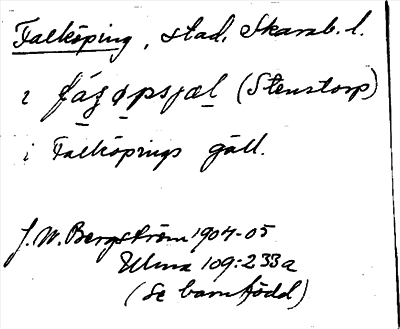 Falköping, stad, Skarab. l.
i fágøpsjæl (Stenstorp)
i Falköpings gäll.
J. W. Bergström 1904-05
Ulma 109:233a
(Se barnfödd)